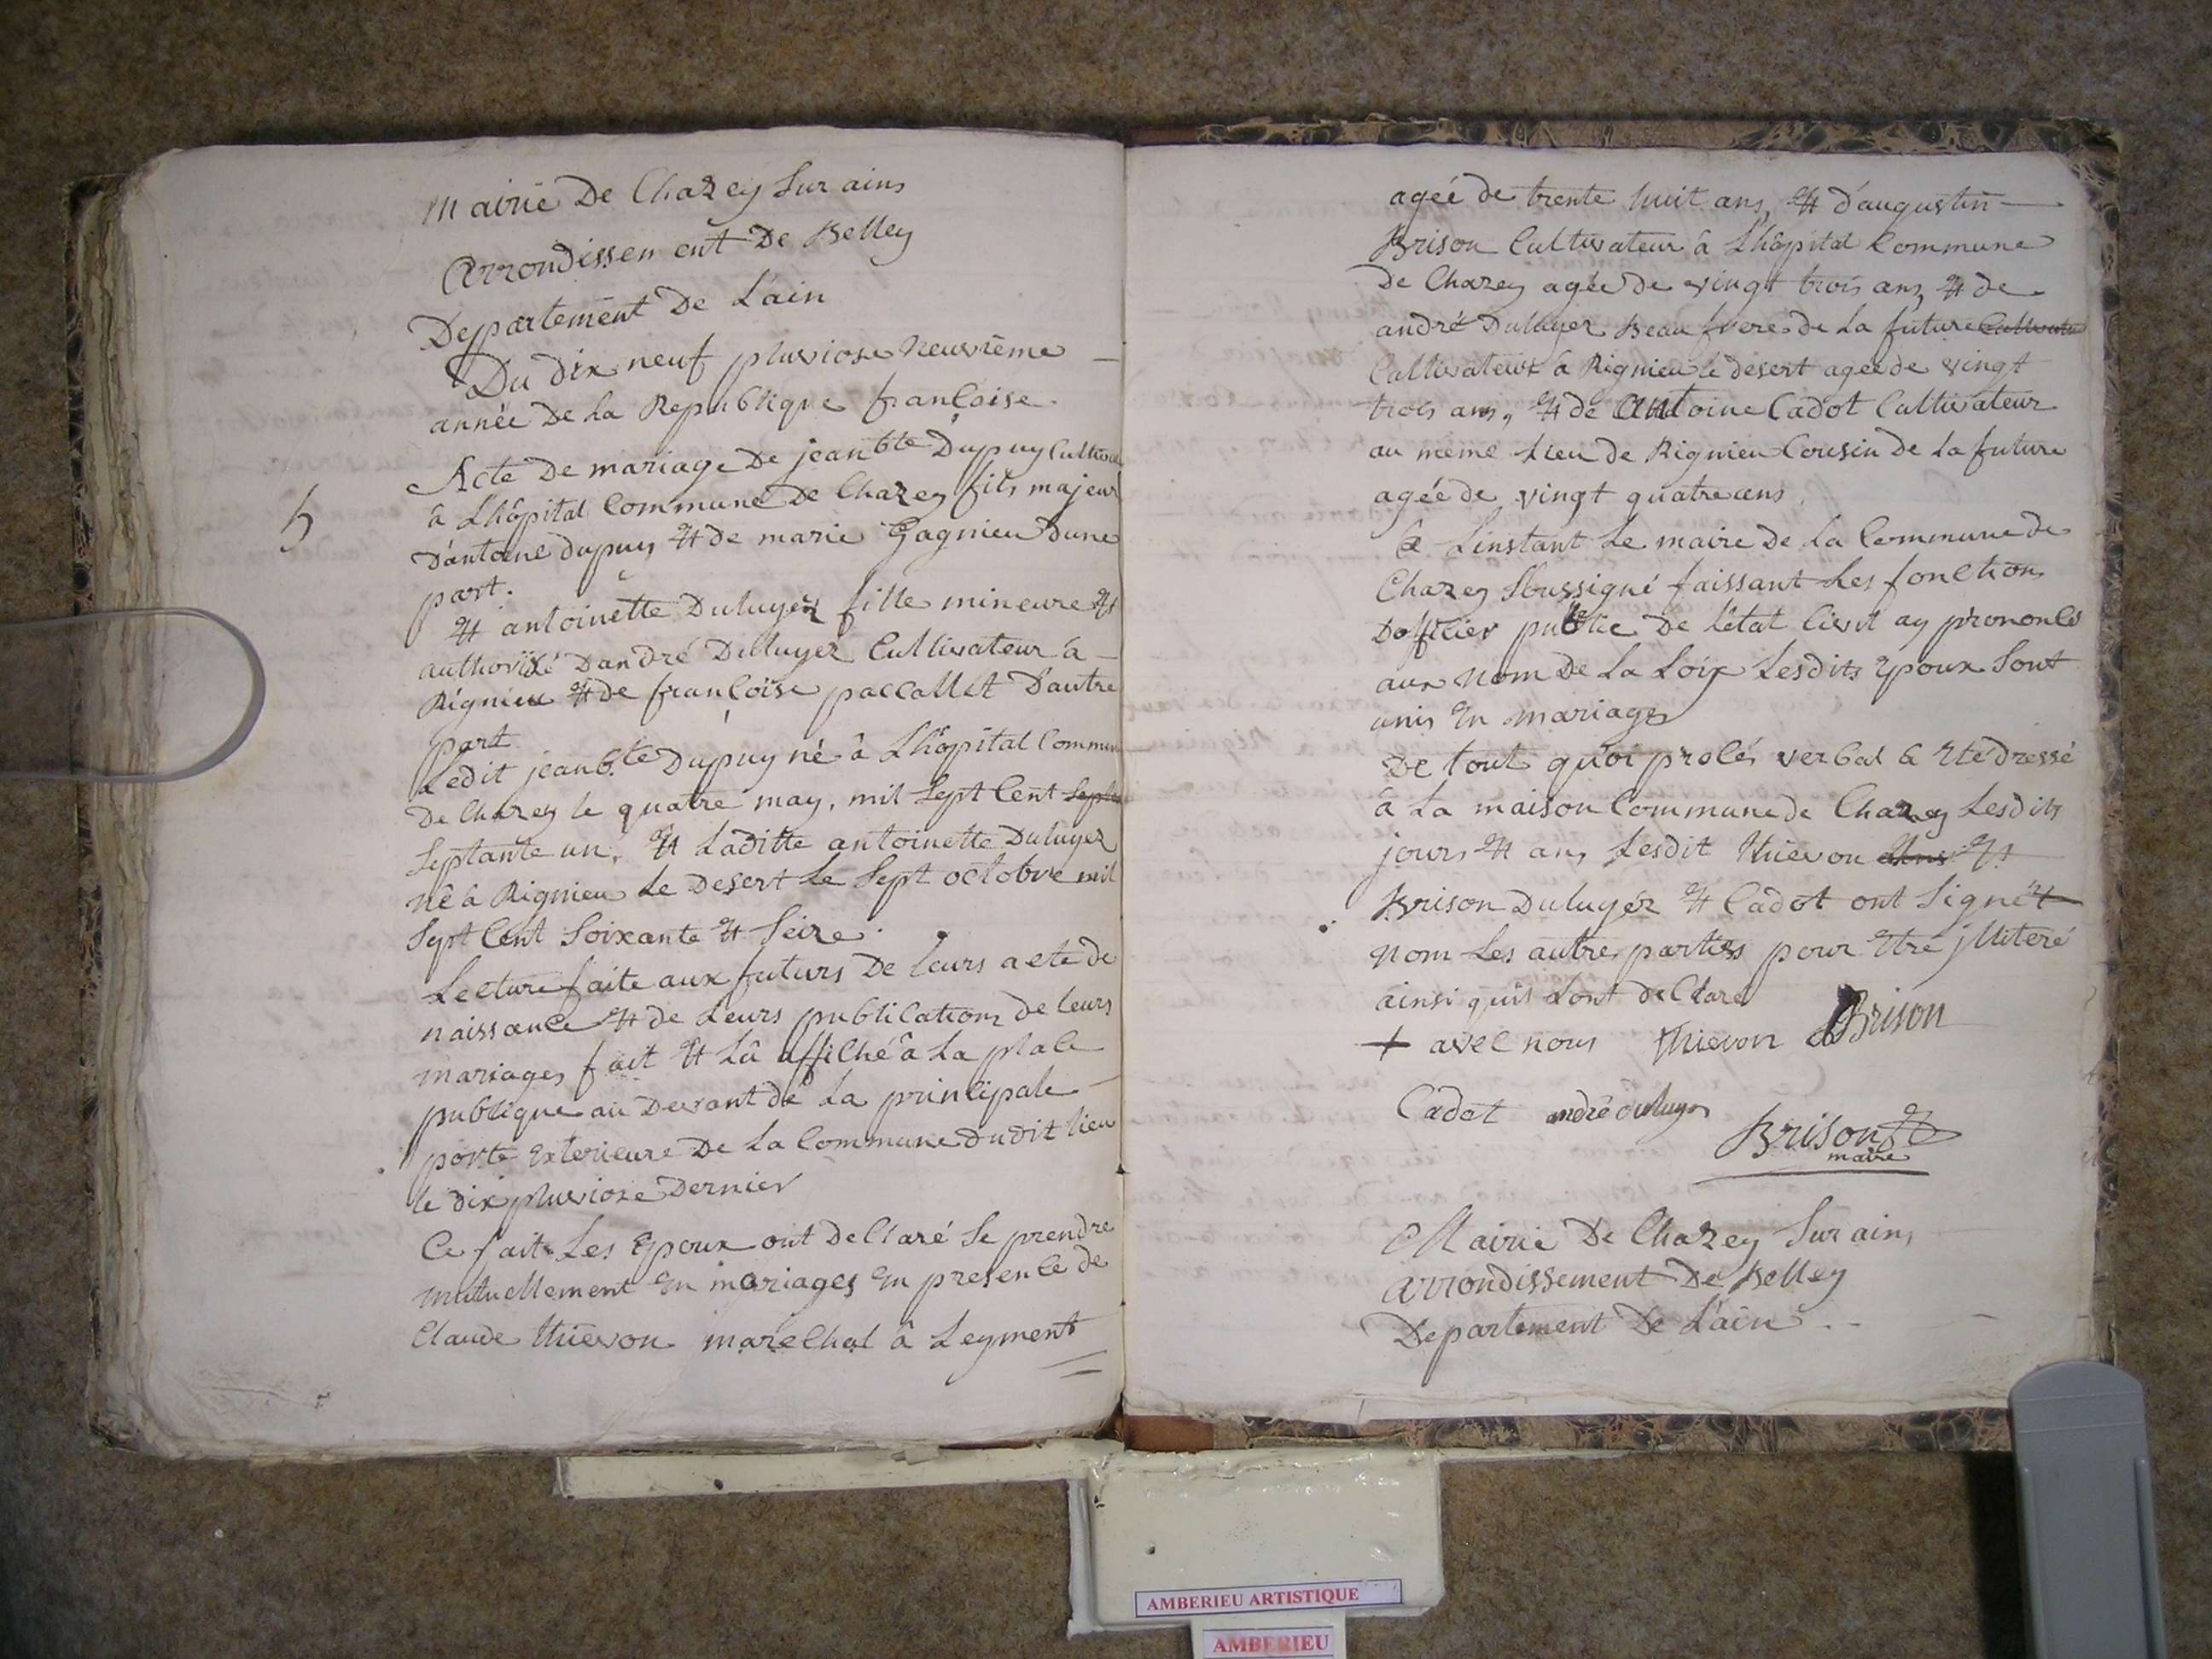 Mairie De Chazey Sur ains
Arrondissement De Belley
Departement De L'ain
Du dix neuf pluviose neuvième
année De La Republique francoise
5
Acte De mariage De jean bte Dupuy Cultiva
à Lhôpital Commune De Chazey fils majeur
D'antoine dupuy et de marie Gagnieu Dune
part.
et antoinette Duluyer fille mineure et
authorizé Dandré Duluyer Cultivateur à
Rignieu et de francoise paccallet Dautre
part
Ledit jean b.te Dupuy né à Lhôpital Commun
De Chazey le quatre may, mil Sept Cent Septa
Septante un, et Laditte antoinette Duluyer
né à Rignieu Le Desert Le Sept octobre mil
Sept Cent Soixante et Seize
Lecture faite aux futurs De leurs acte de
naissance et de Leurs publications de leurs
mariages fait et Lû affiché à La place
publique au Devant de La principale
porte exterieure De La Commune dudit lieu
le dix pluviose Dernier
Ce fait Les Epoux ont Declaré Se prendre
mutuellement en mariages en presence de
Claude thievon marechal à Leyment
agée de trente huit ans, et d'augustin
Brison Cultivateur à Lhôpital Commune
De Chazey agée de vingt trois ans, et de
andré Duluyer Beau frere de La future Cultivateur
Cultivateur à Rignieu le désert agée de vingt
trois ans, et de antoine Cadot Cultivateur
au même Lieu de Rignieu Cousin de La future
agée de vingt quatre ans
à Linstant Le maire De La Commune de
Chazey Soussigné faissant Les fonction
Dofficier public De l'état Civil ay prononcé
aux nom De La Loix Lesdits Epoux Sont
unis en mariage
De tout quoi procés verbal à Eté dressé
à La maison Commune de Chazey Lesdits
jours et ans Lesdit thievon et
Brison Duluyer et Cadot ont Signét
nom Les autre parties pour Etre jlliteré
ainsi quils Lont declaré
+ avec nous thievon Brison
Cadot andré duluyer
Brison
maire
Mairie De Chazey Sur ains
arrondissement De Belley
Departement De L'ain
AMBERIEU ARTISTIQUE
AMBERIEU